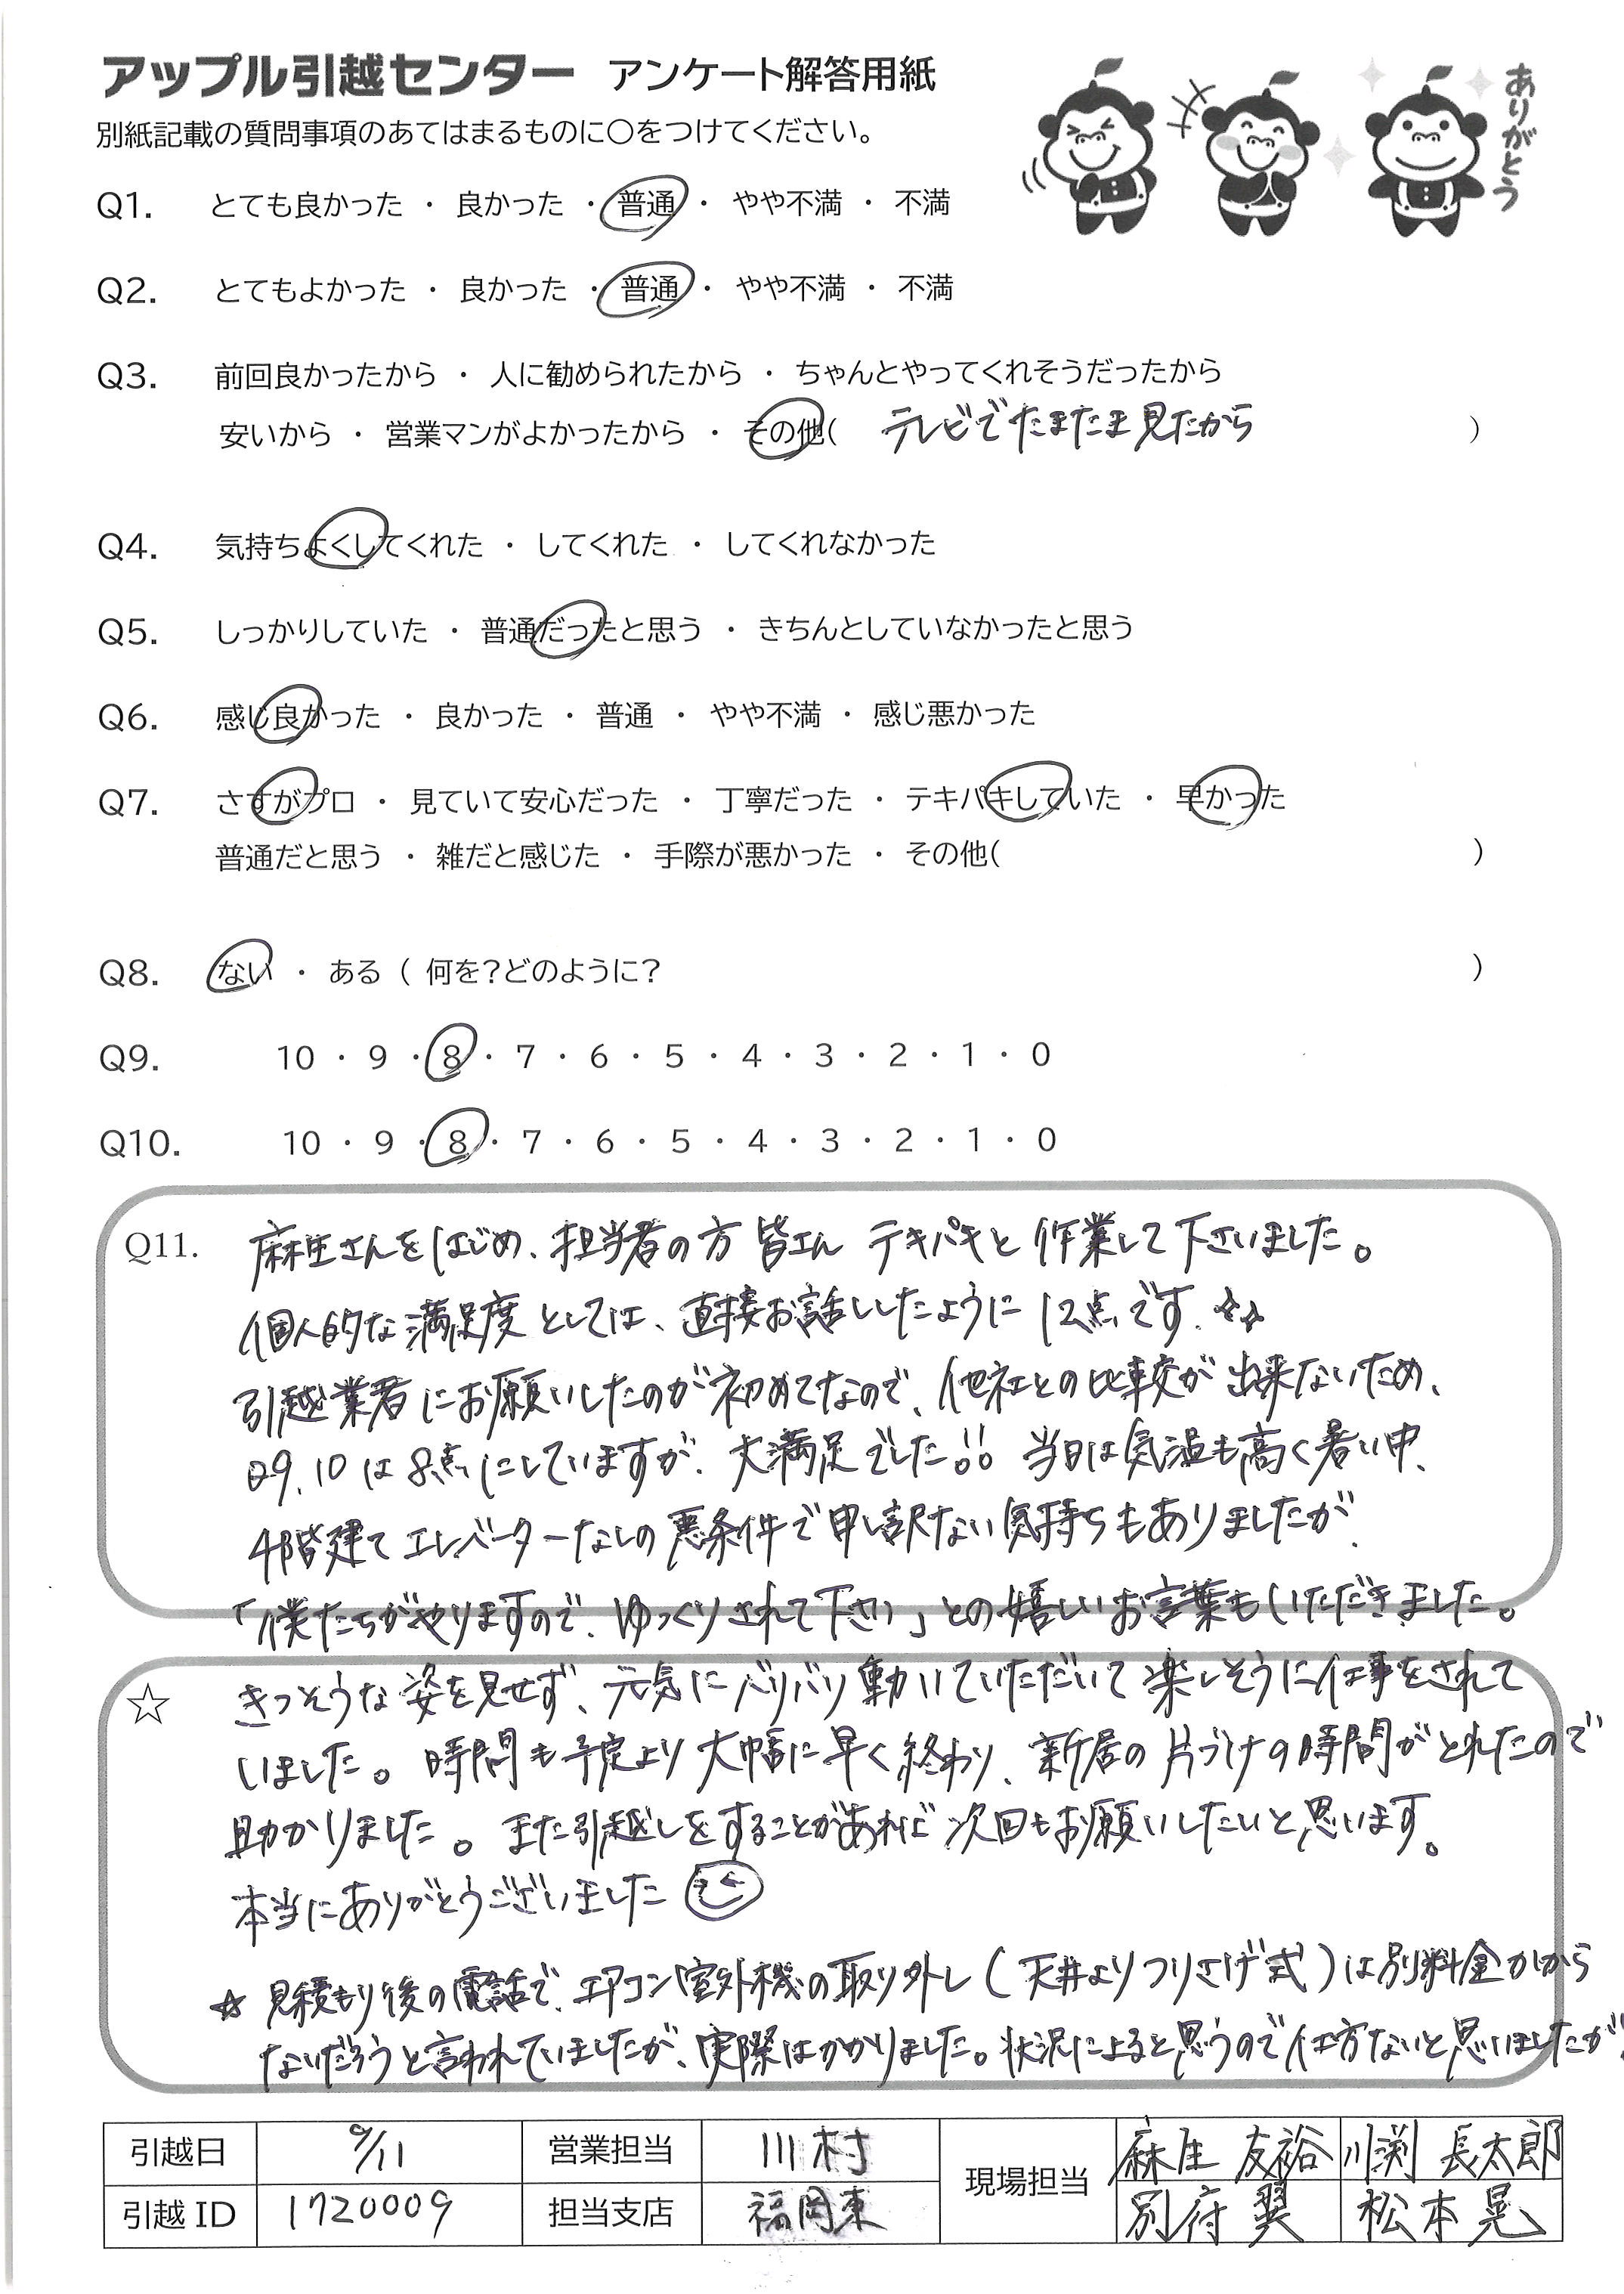 アップル引越センター アンケート解答用紙
ありがとう
別紙記載の質問事項のあてはまるものに○をつけてください。
Q1. とても良かった ・ 良かった ・ 普通 ・ やや不満 ・ 不満
Q2. とてもよかった ・ 良かった ・ 普通 ・ やや不満 ・ 不満
Q3. 前回良かったから ・ 人に勧められたから ・ ちゃんとやってくれそうだったから
安いから ・ 営業マンがよかったから ・ その他( テレビでたまたま見たから )
Q4. 気持ちよくしてくれた ・ してくれた ・ してくれなかった
Q5. しっかりしていた ・ 普通だったと思う ・ きちんとしていなかったと思う
Q6. 感じ良かった ・ 良かった ・ 普通 ・ やや不満 ・ 感じ悪かった
Q7. さすがプロ ・ 見ていて安心だった ・ 丁寧だった ・ テキパキしていた ・ 早かった
普通だと思う ・ 雑だと感じた ・ 手際が悪かった ・ その他( )
Q8. ない ・ ある ( 何を?どのように? )
Q9. 10 ・ 9 ・ 8 ・ 7 ・ 6 ・ 5 ・ 4 ・ 3 ・ 2 ・ 1 ・ 0
Q10. 10 ・ 9 ・ 8 ・ 7 ・ 6 ・ 5 ・ 4 ・ 3 ・ 2 ・ 1 ・ 0
Q11. 麻生さんをはじめ、担当者の方 皆さん テキパキと作業して下さいました。
個人的な満足度としては、直接お話ししたように12点です.☆☆
引越業者にお願いしたのが初めてなので、他社との比較が出来ないため、
Q9.10は8点にしていますが、大満足でした!! 当日は気温も高く暑い中、
4階建てエレベーターなしの悪条件で申し訳ない気持ちもありましたが、
「僕たちがやりますので、ゆっくりされて下さい」との嬉しいお言葉もいただきました。
☆ きつそうな姿を見せず、元気にバリバリ動いていただいて楽しそうに仕事をされて
いました。時間も予定より大幅に早く終わり、新居の片づけの時間がとれたので
助かりました。また引越しをすることがあれば次回もお願いしたいと思います。
本当にありがとうございました
☆ 見積もり後の電話で、エアコン室外機の取り外し(天井よりつりさげ式)は別料金かから
ないだろうと言われていましたが、実際はかかりました。状況によると思うので仕方ないと思いましたが、
引越日 9/11 営業担当 川村 現場担当 麻生 友裕 川渕 長太郎
引越ID 1720009 担当支店 福岡東 別府 翼 松本晃